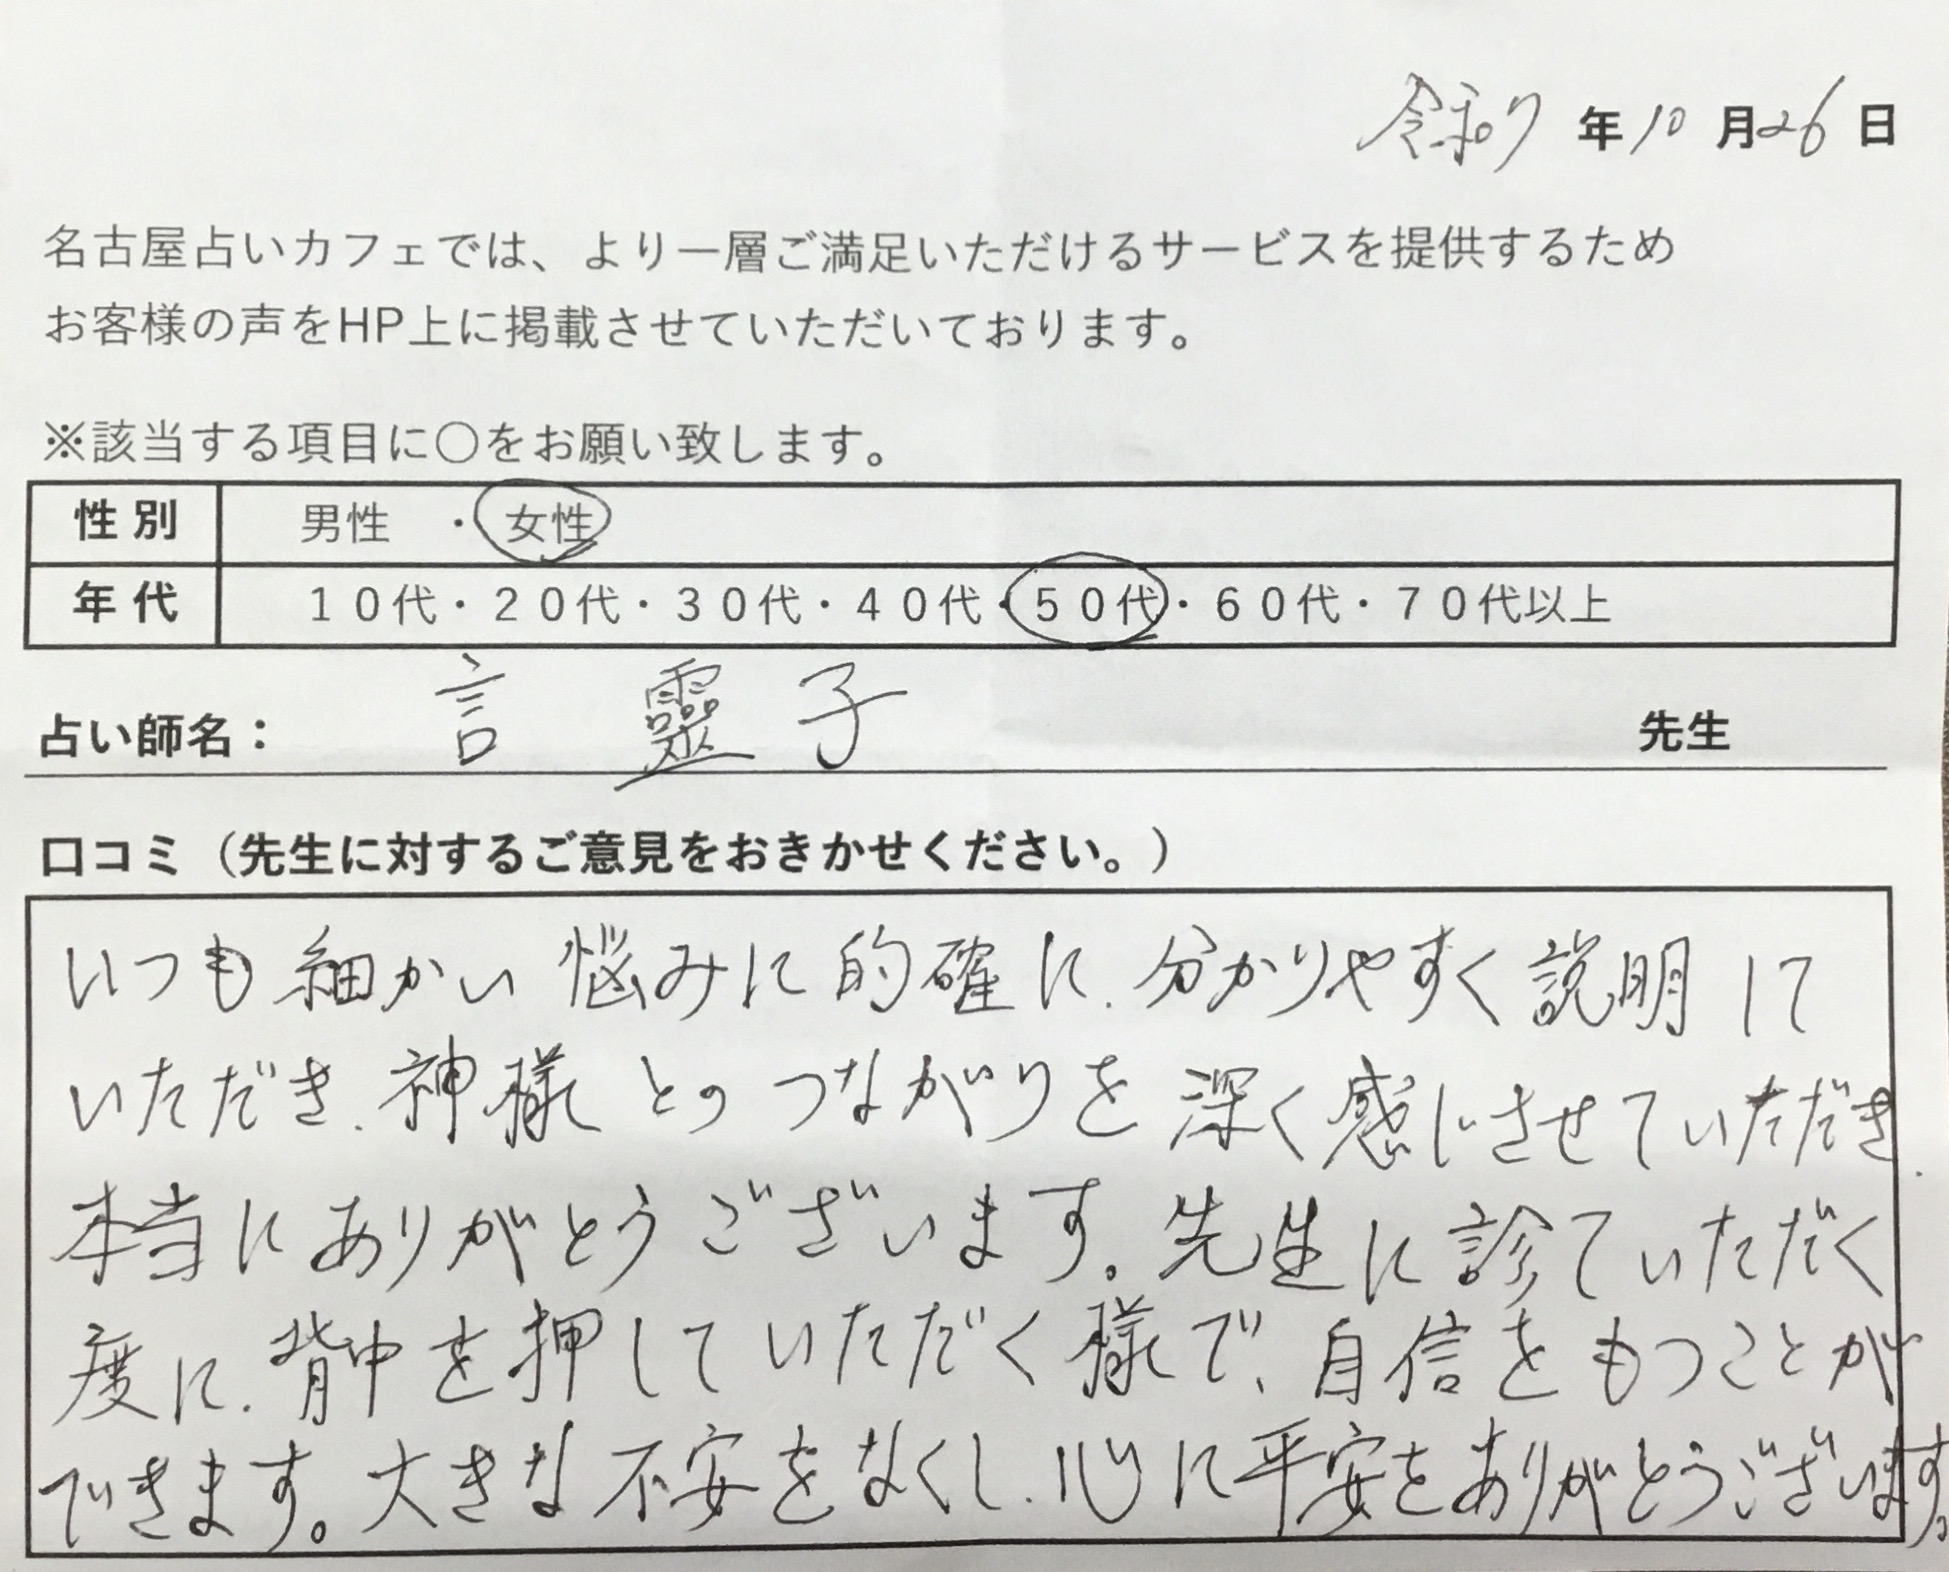 令和7年10月26日
名古屋占いカフェでは、より一層ご満足いただけるサービスを提供するため
お客様の声をHP上に掲載させていただいております。
※該当する項目に〇をお願い致します。
性別 男性 ・ 女性
年代 10代・20代・30代・40代・50代・60代・70代以上
占い師名： 言靈子 先生
口コミ（先生に対するご意見をおきかせください。）
いつも細かい悩みに的確に、分かりやすく説明して
いただき、神様とのつながりを深く感じさせていただき、
本当にありがとうございます。先生に診ていただく
度に、背中を押していただく様で、自信をもつことが
できます。大きな不安をなくし、心に平安をありがとうございます。